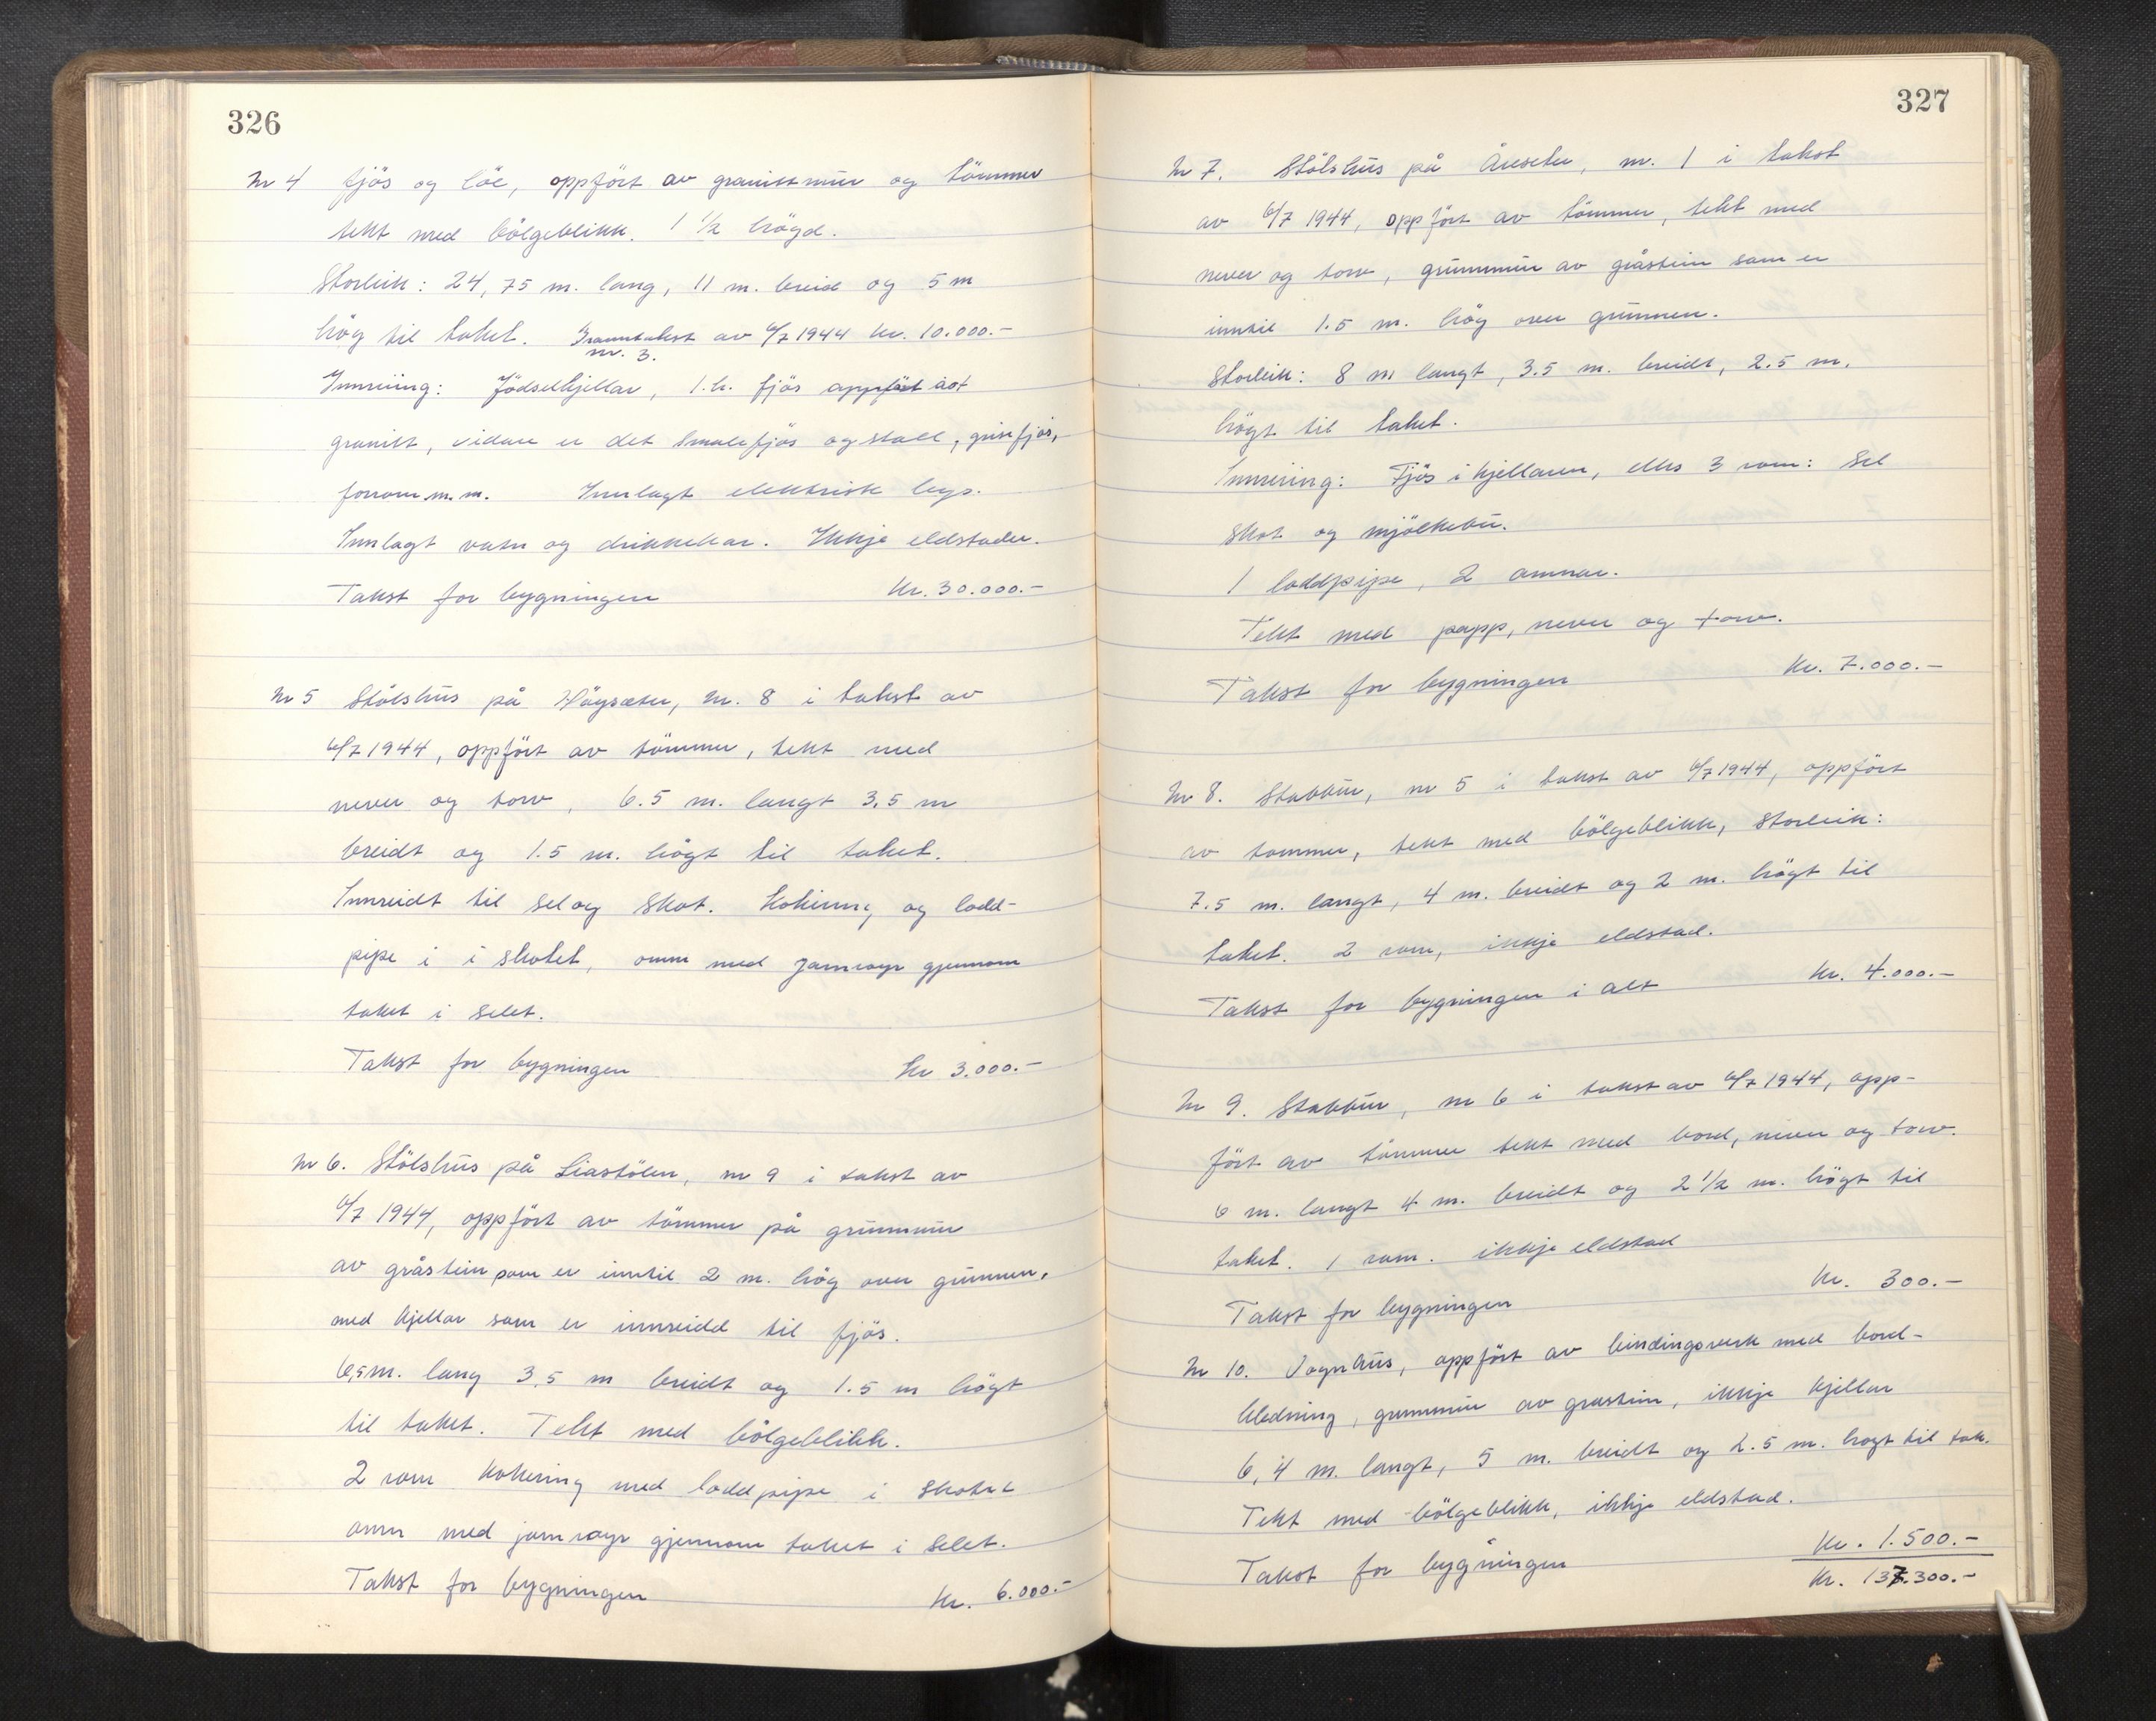 326
Nr 4 fjös og löe, oppfört av granittmur og tömmer
tekt med bölgeblikk. 1 1/2 högd.
Storleik: 24,75 m. lang, 11 m. breid og 5 m
hög til taket. Branntakst av 6/7 1944 kr. 10.000.-
nr. 3.
Innreiing: Jödselkjellar, 1.h. fjös oppfört åt
granitt, vidare er det smalefjös og stall, grisefjös,
forrom m.m. Innlagt elektrisk lys.
Innlagt vatn og drikkekar. Ikkje eldstader.
Takst for bygningen kr. 30.000.-
Nr 5 Stölshus på Högsæter, nr. 8 i takst av
6/7 1944, oppfört av tömmer, tekt med
never og torv, 6.5 m. langt 3.5 m
breidt og 1.5 m. högt til taket.
Innreidt til sel og skot. Kokering og lodd-
pipe i i skotet, omn med jarnrøyr gjennom
taket i selet.
Takst for bygningen kr 3.000.-
Nr 6. Stölshus på Liastölen, nr 9 i takst av
6/7 1944, oppfört av tömmer på grunnmur
av gråstein som er inntil 2 m. hög over grunnen,
med kjellar som er innreidd til fjös.
6,5 m. lang 3,5 m breidt og 1.5 m högt
til taket. Tekt med bölgeblikk.
2 rom kokering med loddpipe i skotet
omn med jarnrøyr gjennom taket i selet.
Takst for bygningen kr. 6.000.-
327
Nr 7. Stölshus på Åreseter, nr. 1 i takst
av 6/7 1944, oppfört av tömmer, tekt med
never og torv, grunnmur av gråstein som er
inntil 1.5 m. hög over grunnen.
Storleik: 8 m langt, 3.5 m. breidt, 2.5 m.
högt til taket.
Innreiing: Fjös i kjellaren, elles 3 rom: Sel
skot og mjölkebu.
1 loddpipe, 2 omnar.
Tekt med papp, never og torv.
Takst for bygningen kr. 7.000.-
Nr 8. Stabbur, nr 5 i takst av 6/7 1944, oppfört
av tommer, tekt med bölgeblikk, storleik:
7.5 m. langt, 4 m. breidt og 2 m. högt til
taket. 2 rom, ikkje eldstad.
Takst for bygningen i alt kr. 4.000.-
Nr 9. Stabbur, nr 6 i takst av 6/7 1944, opp-
fört av tömmer tekt med bord, never og torv.
6 m. langt 4 m. breidt og 2 1/2 m. högt til
taket. 1 rom. ikkje eldstad
Takst for bygningen kr. 300.-
Nr 10. Vognhus, oppfört av bindingsverk med bord-
kledning, grunnmur av gråstein, ikkje kjellar
6,4 m. langt, 5 m. breidt og 2.5 m. högt til tak.
Tekt med bölgeblikk, ikkje eldstad.
Takst for bygningen kr. 1.500.-
Kr. 137.300.-